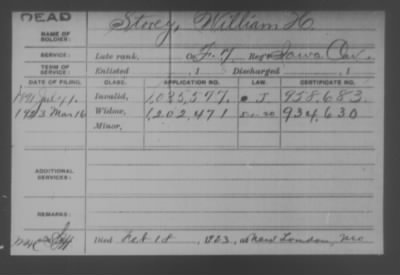 DEAD
NAME OF SOLDIER: Storey, William H.
SERVICE: Late rank, Co. F. 7 Reg't Iowa Cav.
TERM OF SERVICE: Enlisted , 1 Discharged , 1
DATE OF FILING. CLASS. APPLICATION NO. LAW. CERTIFICATE NO.
1891 July 1. Invalid, 1,035,597. J 958,683.
1923 Mar 16 Widow, 1,202,471 5-1-20 934,630
Minor,
ADDITIONAL SERVICES:
REMARKS:
Died Feb 18, 1923, at New London, Mo